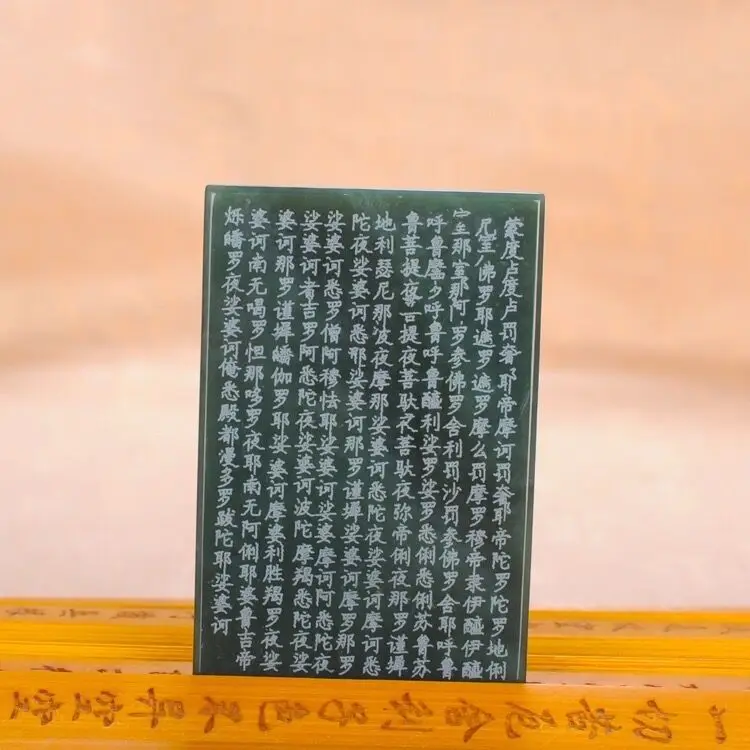 蒙度卢度卢罚奢耶帝摩诃罚奢耶帝陀罗陀罗地俐
尼室佛罗耶遮罗遮罗摩么罚摩罗穆帝隶伊醯伊醯
室那室那阿罗参佛罗舍利罚沙罚参佛罗舍耶呼鲁
呼鲁呼鲁呼鲁醯利娑罗娑罗悉俐悉俐苏鲁苏
鲁菩提夜菩提夜菩驮夜菩驮夜弥帝俐夜那罗谨墀
地利瑟尼那波夜摩那娑婆诃悉陀夜娑婆诃摩诃悉
陀夜娑婆诃悉那娑婆诃那罗谨墀娑婆诃摩罗那罗
娑婆诃悉罗僧阿穆怯耶娑婆诃娑婆摩诃阿悉陀夜
娑婆诃者吉罗阿悉陀夜娑婆诃波陀摩羯悉陀夜娑
婆诃那罗谨墀皤伽罗耶娑婆诃摩婆利胜羯罗夜娑
婆诃南无喝罗怛那哆罗夜耶南无阿俐耶婆鲁吉帝
烁皤罗夜娑婆诃俺悉殿都漫多罗跋陀耶娑婆诃
一切苦厄舍利子色不异空空